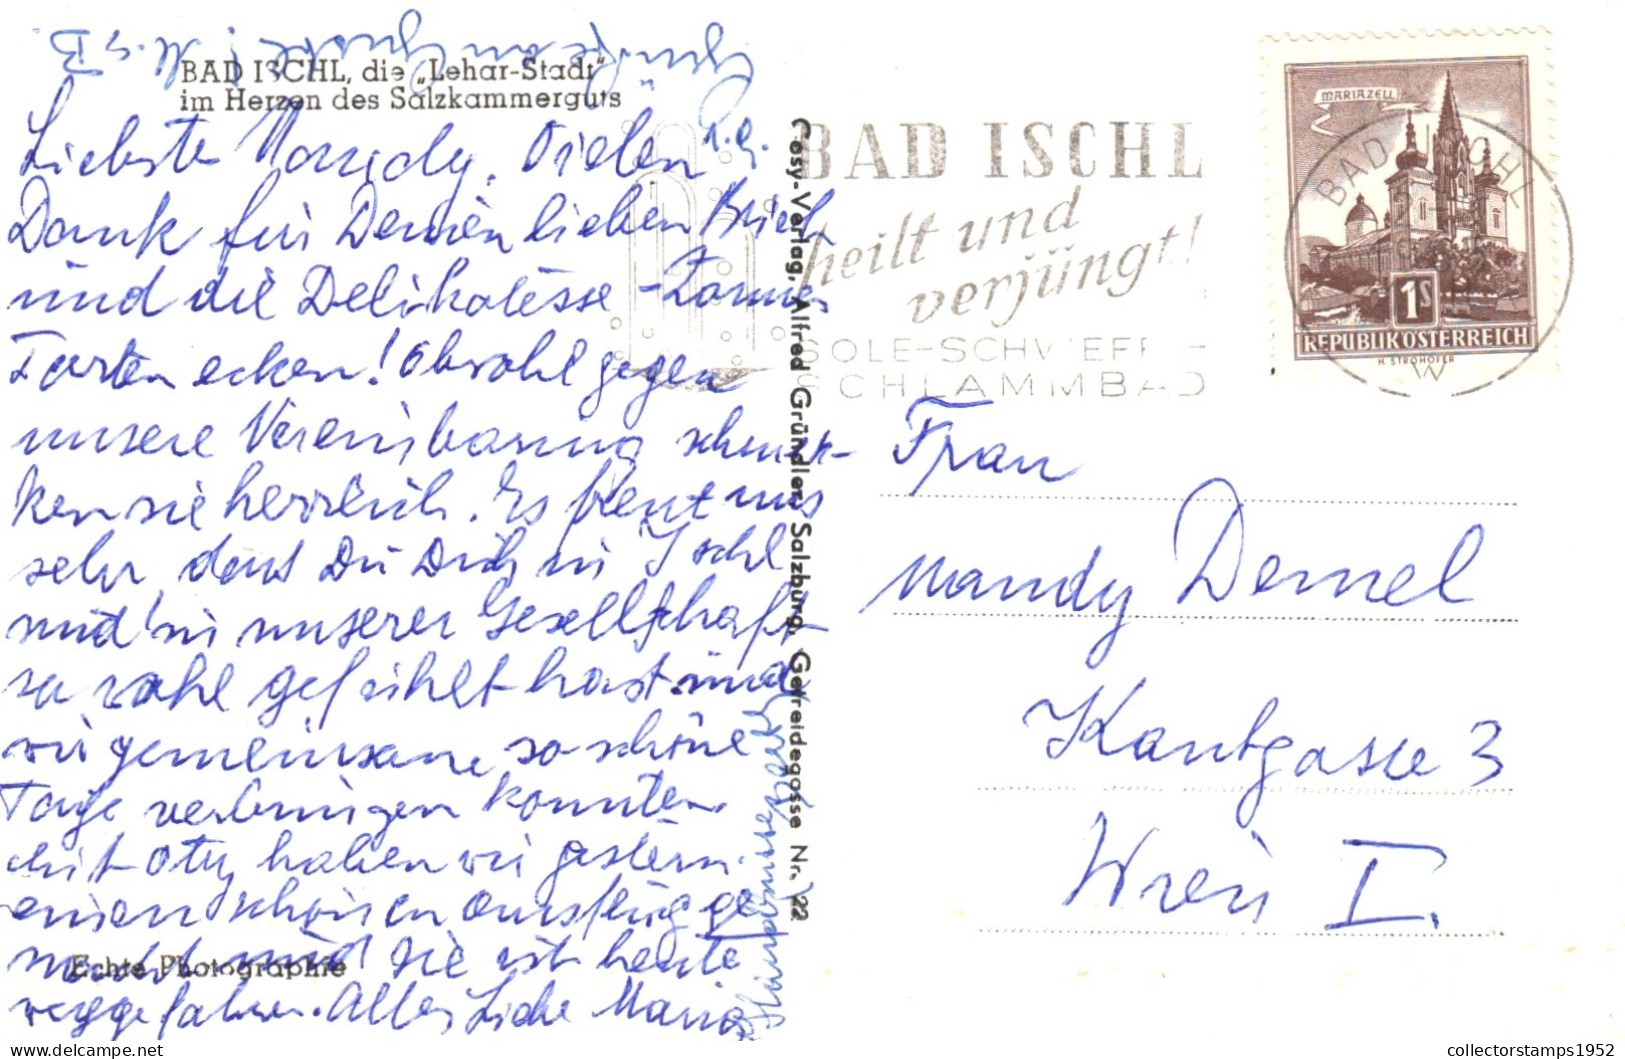 BAD ISCHL, die „Lehar-Stadt"
im Herzen des Salzkammerguts
Liebste Mandy, Vielen
Dank für Deinen lieben Brief
und die Delikatesse
Torten ecken! Obwohl gegen
unsere Vereinbarung schmek-
ken sie herrlich. Es freut uns
sehr, dass Du Dich in Ischl
und in unserer Gesellschaft
so wohl gefühlt hast und
wir gemeinsam so schöne
Tage verbringen konnten.
Mit Otty haben wir gestern
einen schönen Ausflug ge
macht und sie ist heute
weggefahren. Alles Liebe Maria
Echte Photographie
Cosy-Verlag, Alfred Gründler, Salzburg, Getreidegasse Nr. 22
BAD ISCHL
heilt und
verjüngt!
SOLE-SCHWEFEL-
SCHLAMMBAD
MARIAZELL
BAD ISCHL
1S
REPUBLIK ÖSTERREICH
H. STROHOFER
Frau
Mandy Demel
Kantgasse 3
Wien I.
collectorstamps1952